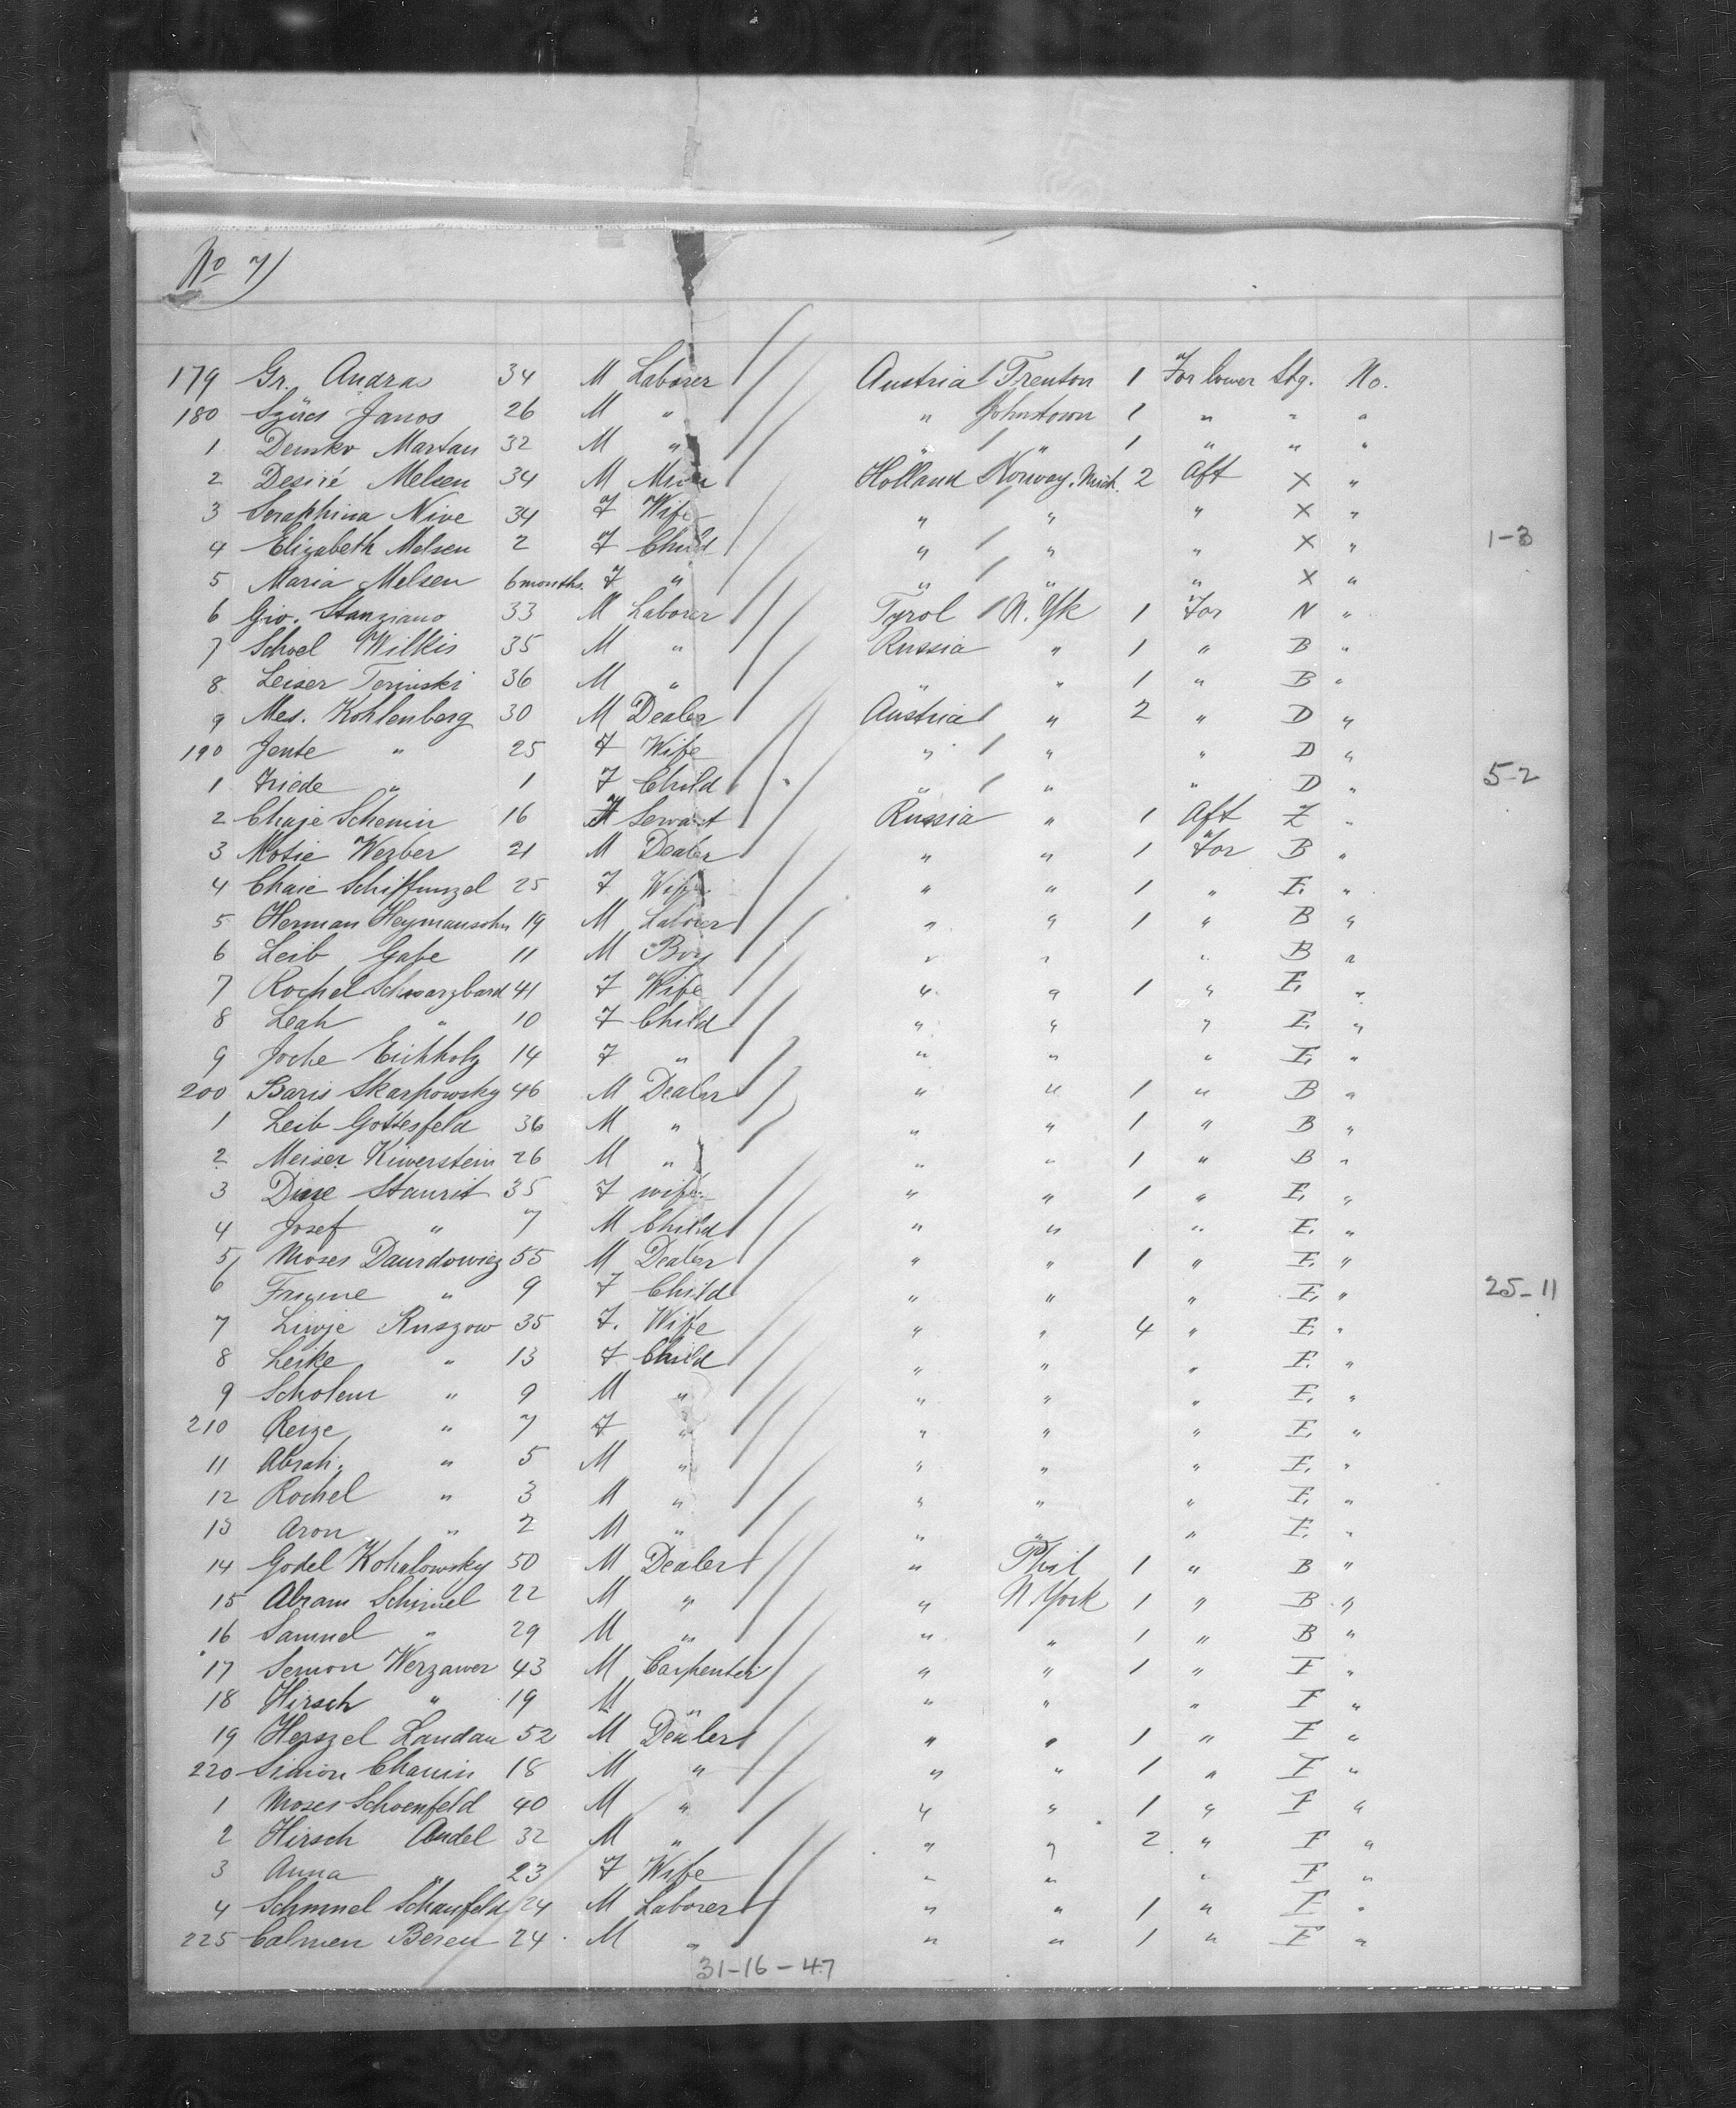 No 7)
179 Gr. Andras 34 M Laborer Austria Trenton 1 For lower Stg. No.
180 Szücs Janos 26 M " " Johnstown 1 " " "
1 Demko Martan 32 M " " " 1 " " "
2 Desiré Melsen 34 M Holland Norway. Mich. 2 Aft X "
3 Seraphina Nive 34 F Wife " " " X "
4 Elizabeth Melsen 2 F Child " " " X " 1-3
5 Maria Melsen 6 months. F " " " " X "
6 Gio. Stanziano 33 M Laborer Tyrol N. Yk 1 For N "
7 Schoel Wilkis 35 M " Russia " 1 " B "
8 Leiser Terinski 36 M " " " 1 " B "
9 Mes. Kohlenberg 30 M Dealer Austria " 2 " D "
190 Jente " 25 F Wife " " " D "
1 Friede " 1 F Child " " " D " 5-2
2 Chaje Schenin 16 F Servant Russia " 1 Aft Z "
3 Motie Werber 21 M Dealer " " 1 For B "
4 Chaie Schiffmuzel 25 F Wife " " 1 " E. "
5 Herman Heymansohn 19 M Laborer " " 1 " B "
6 Leib Gafe 11 M Boy " " " B "
7 Rochel Schwarzbard 41 F Wife " " 1 " E. "
8 Leah " 10 F Child " " " E. "
9 Joche Eichholz 14 F " " " " E. "
200 Baris Skarpowsky 46 M Dealer " " 1 " B "
1 Leib Gottesfeld 36 M " " " 1 " B "
2 Meiser Kiwerstein 26 M " " " 1 " B "
3 Stawrit 35 F wife " " 1 " E. "
4 Josef " 7 M Child " " " E. "
5 Moses Daurdowiez 55 M Dealer " " 1 " E. "
6 Frume " 9 F Child " " " E. " 25-11
7 Liwje Ruszow 35 F. Wife " " 4 " E. "
8 Leike " 13 F Child " " " E. "
9 Scholem " 9 M " " " " E. "
210 Reize " 7 F " " " " E. "
11 Abrah. " 5 M " " " " E. "
12 Rochel " 3 M " " " " E. "
13 Aron " 2 M " " " " E. "
14 Godel Kohalowsky 50 M Dealer " Phil 1 " B "
15 Abram Schimel 22 M " " N. York 1 " B "
16 Samuel " 29 M " " " 1 " B "
17 Semon Werzawer 43 M Carpenter " " 1 " F "
18 Hirsch " 19 M " " " " F "
19 Herszel Landau 52 M Dealer " " 1 " F "
220 Simon Chanin 18 M " " " 1 " F "
1 Moses Schoenfeld 40 M " " " 1 " F "
2 Hirsch Andel 32 M " " " 2 " F "
3 Anna " 23 F Wife " " " F "
4 Schmuel Schaufeld 24 M Laborer " " 1 " F "
225 Calmen Beren 24 M " " " 1 " F "
31-16-47